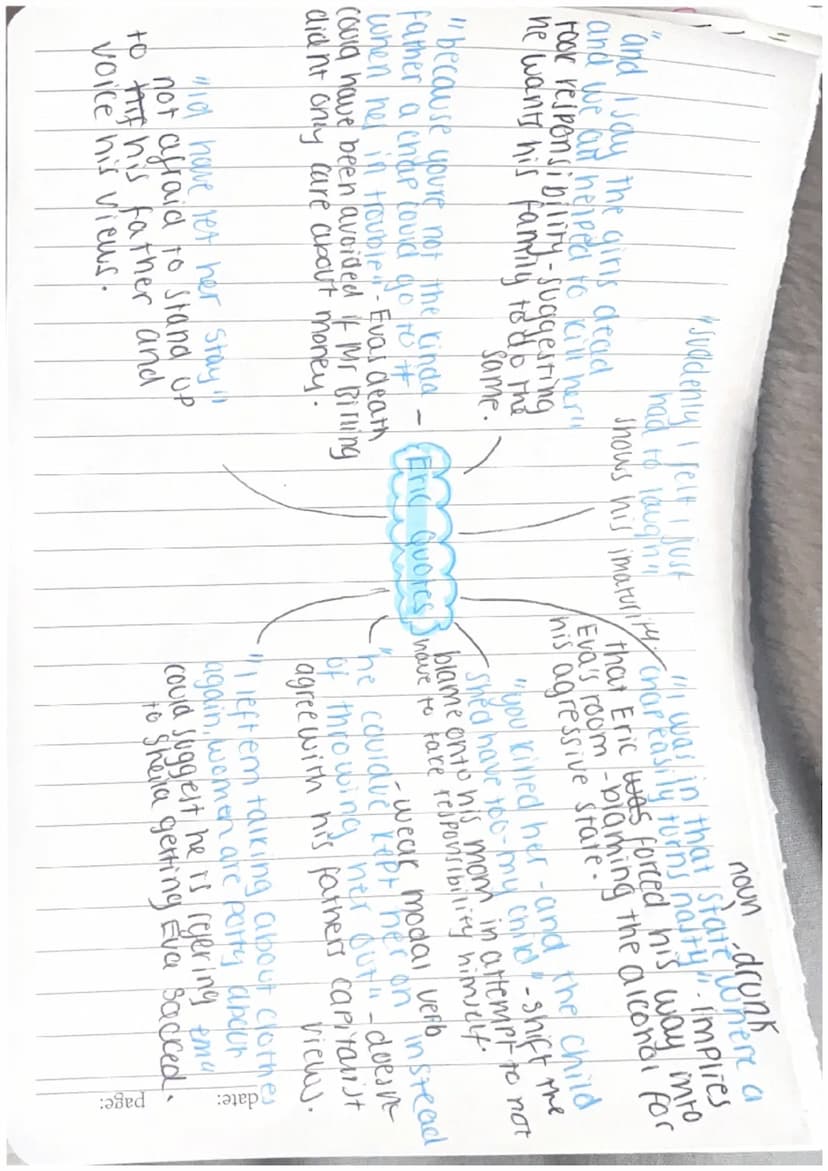 "and I say the girls dead
and we all helped to kill her"
took responsibility - suggesting
he wants his family to do the
same.
"because you're not the kinda
father a chap could go to
when hes in trouble" - Evas death
could have been avoided if Mr Birling
didnt only care about money.
"Id have let her stay"
not afraid to stand up
to his father and
voice his views.
"suddenly I felt I just
had to laugh"
shows his imaturity.
Eric Quotes
noun
drunk
"I was in that state where a
chap easily turns nasty" - implies
that Eric was forced his way into
Eva's room - blaming the alcohol for
his agressive state.
"you killed her - and the child
shed have too - my child" - shift the
blame onto his mom in attempt to not
have to take responsibility himself.
- weak modal verb
"he couldve kept her on instead
of throwing her out" - doesnt
agree with his fathers capitalist
views.
"I left em talking about clothes
again, women are potty about em"
could suggest he is refering
to Sheila getting Eva sacked.
date:
page: